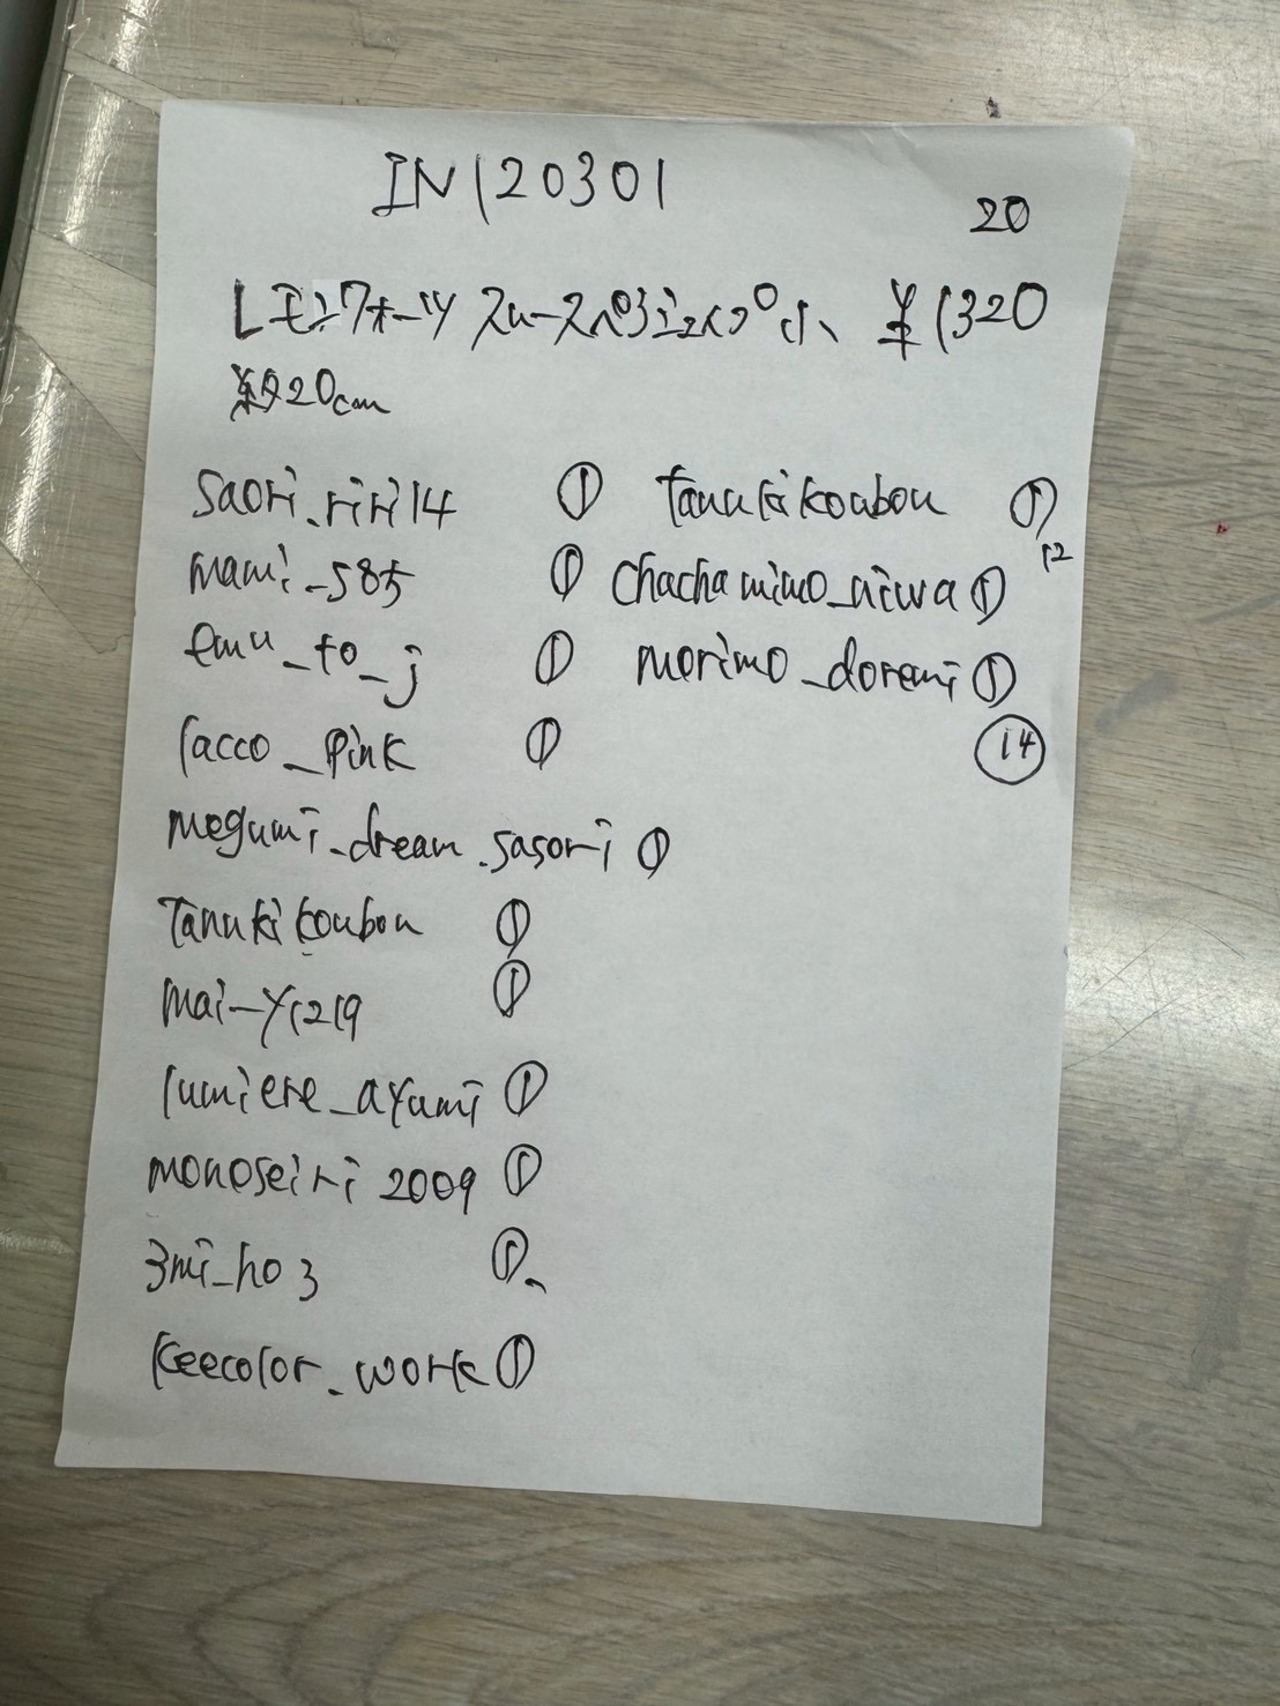 IN120301
20
レモンクォーツ スムースペアシェイプ 小 ¥1320
約20cm
saori.riri14 ①
mami_585 ①
emu_to_j ①
racco_pink ①
megumi_dream.sasori ①
Tanukikoubou ①
mai_y1219 ①
lumiere_ayumi ①
monoseiri2009 ①
3mi_ho3 ①
keecolor_work ①
tanukikoubou ①
12
chachamimo_niwa ①
morimo_doremi ①
14